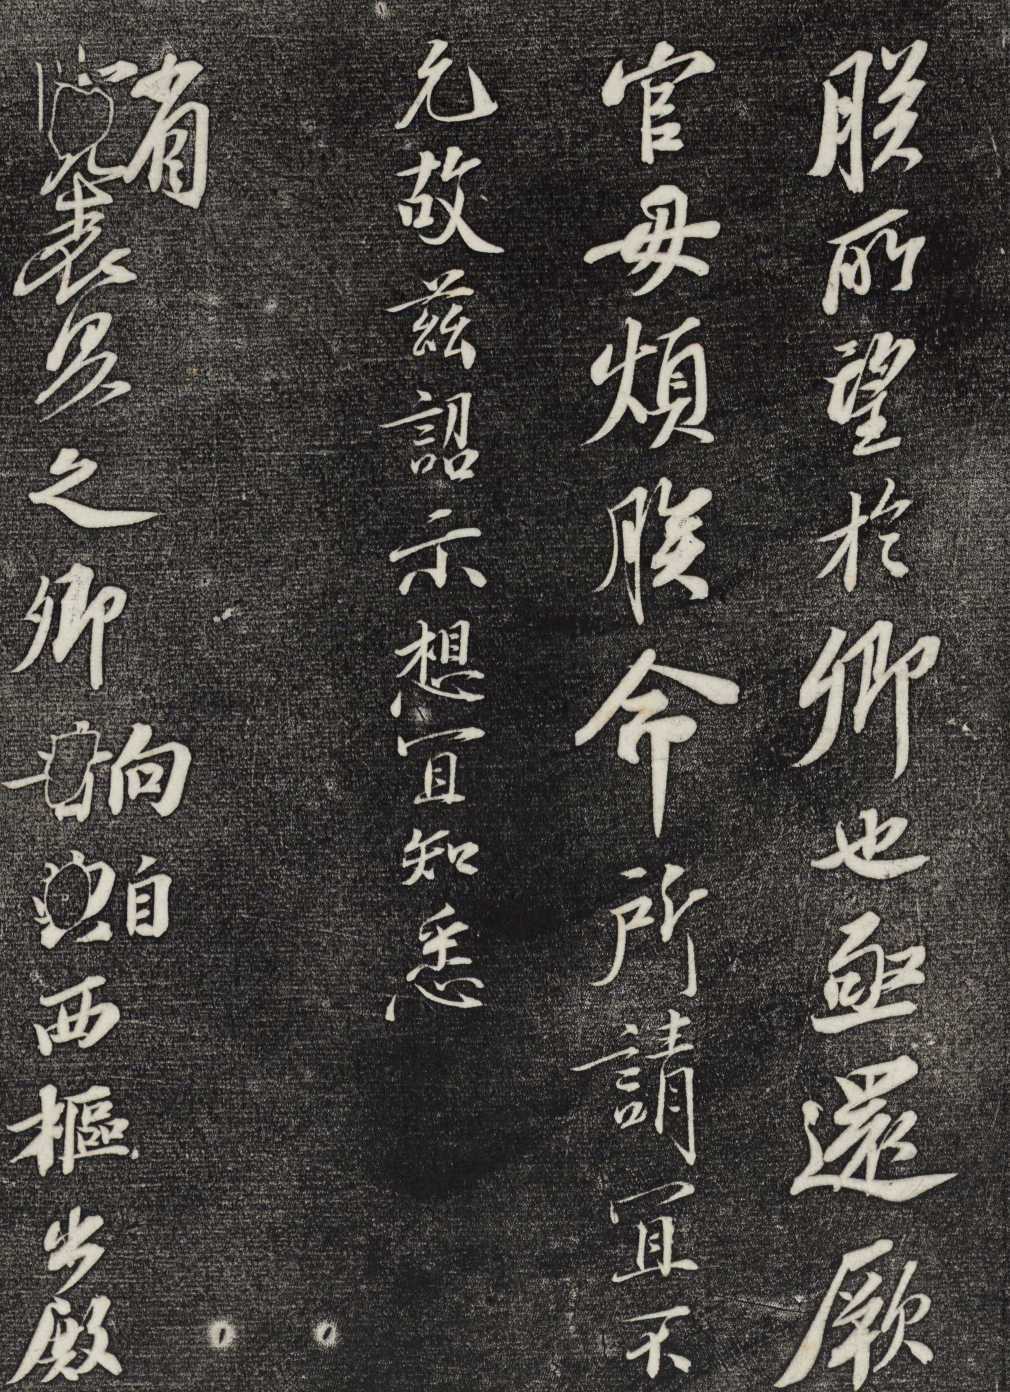 朕所望於卿也亟還厥
官毋煩朕命所請宜不
允故茲詔示想宜知悉
省表具之卿向自西樞出殿